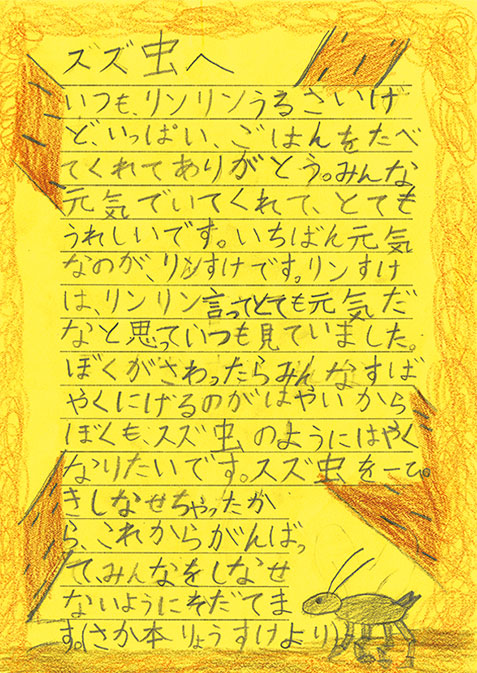 ズズ虫へ
いつも、リンリンうるさいげ
ど、いっぱい、ごはんをたべ
てくれてありがとう。みんな
元気でいてくれて、とても
うれしいです。いちばん元気
なのが、リンすけです。リンすけ
は、リンリン言ってとても元気だ
なと思っていつも見ていました。
ぼくがさわったらみんなすば
やくにげるのがはやいから
ぼくも、スズ虫のようにはやく
なりたいです。スズ虫を一ぴ
きしなせちゃったか
ら、これからがんばっ
て、みんなをしなせ
ないようにそだてま
す。(さか本りょうすけより)